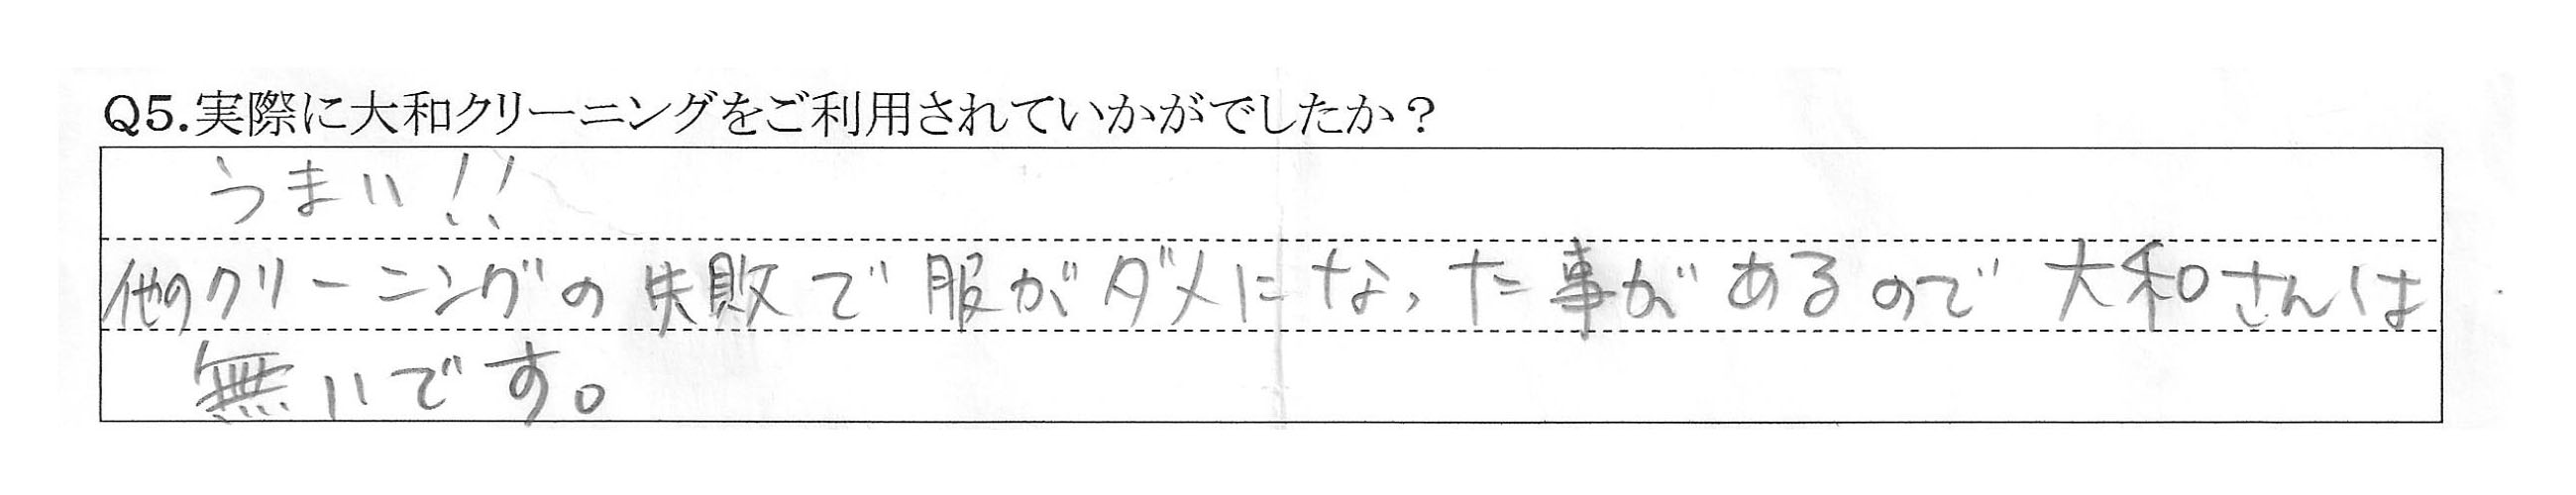 Q5.実際に大和クリーニングをご利用されていかがでしたか？
うまい!!
他のクリーニングの失敗で服がダメになった事があるので大和さんは
無いです。